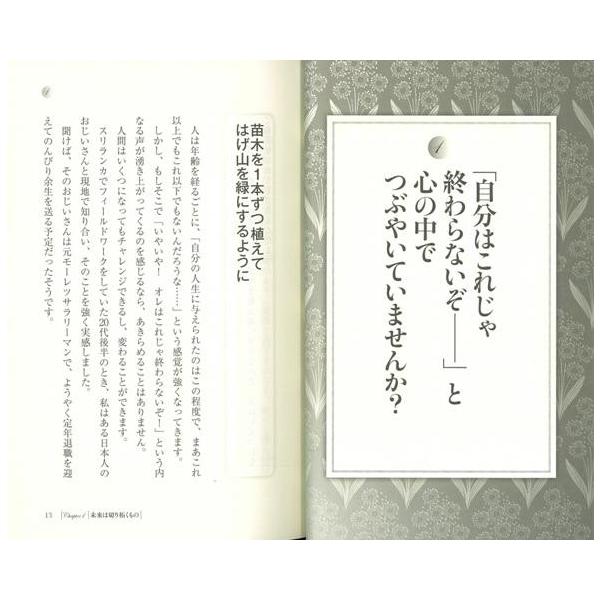 1
「自分はこれじゃ
終わらないぞ――」と
心の中で
つぶやいていませんか？
苗木を1本ずつ植えて
はげ山を緑にするように
人は年齢を経るごとに、「自分の人生に与えられたのはこの程度で、まあこれ
以上でもこれ以下でもないんだろうな……」という感覚が強くなってきます。
しかし、もしそこで「いやいや！　オレはこれじゃ終わらないぞ！」という内
なる声が湧き上がってくるのを感じるなら、あきらめることはありません。
人間はいくつになってもチャレンジできるし、変わることができます。
スリランカでフィールドワークをしていた20代後半のとき、私はある日本人の
おじいさんと現地で知り合い、そのことを強く実感しました。
聞けば、そのおじいさんは元モーレツサラリーマンで、ようやく定年退職を迎
えてのんびり余生を送る予定だったそうです。
13 Chapter 1 未来は切り拓くもの